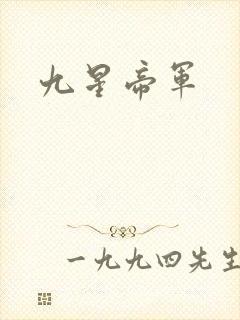 九星帝军
一九九四先生